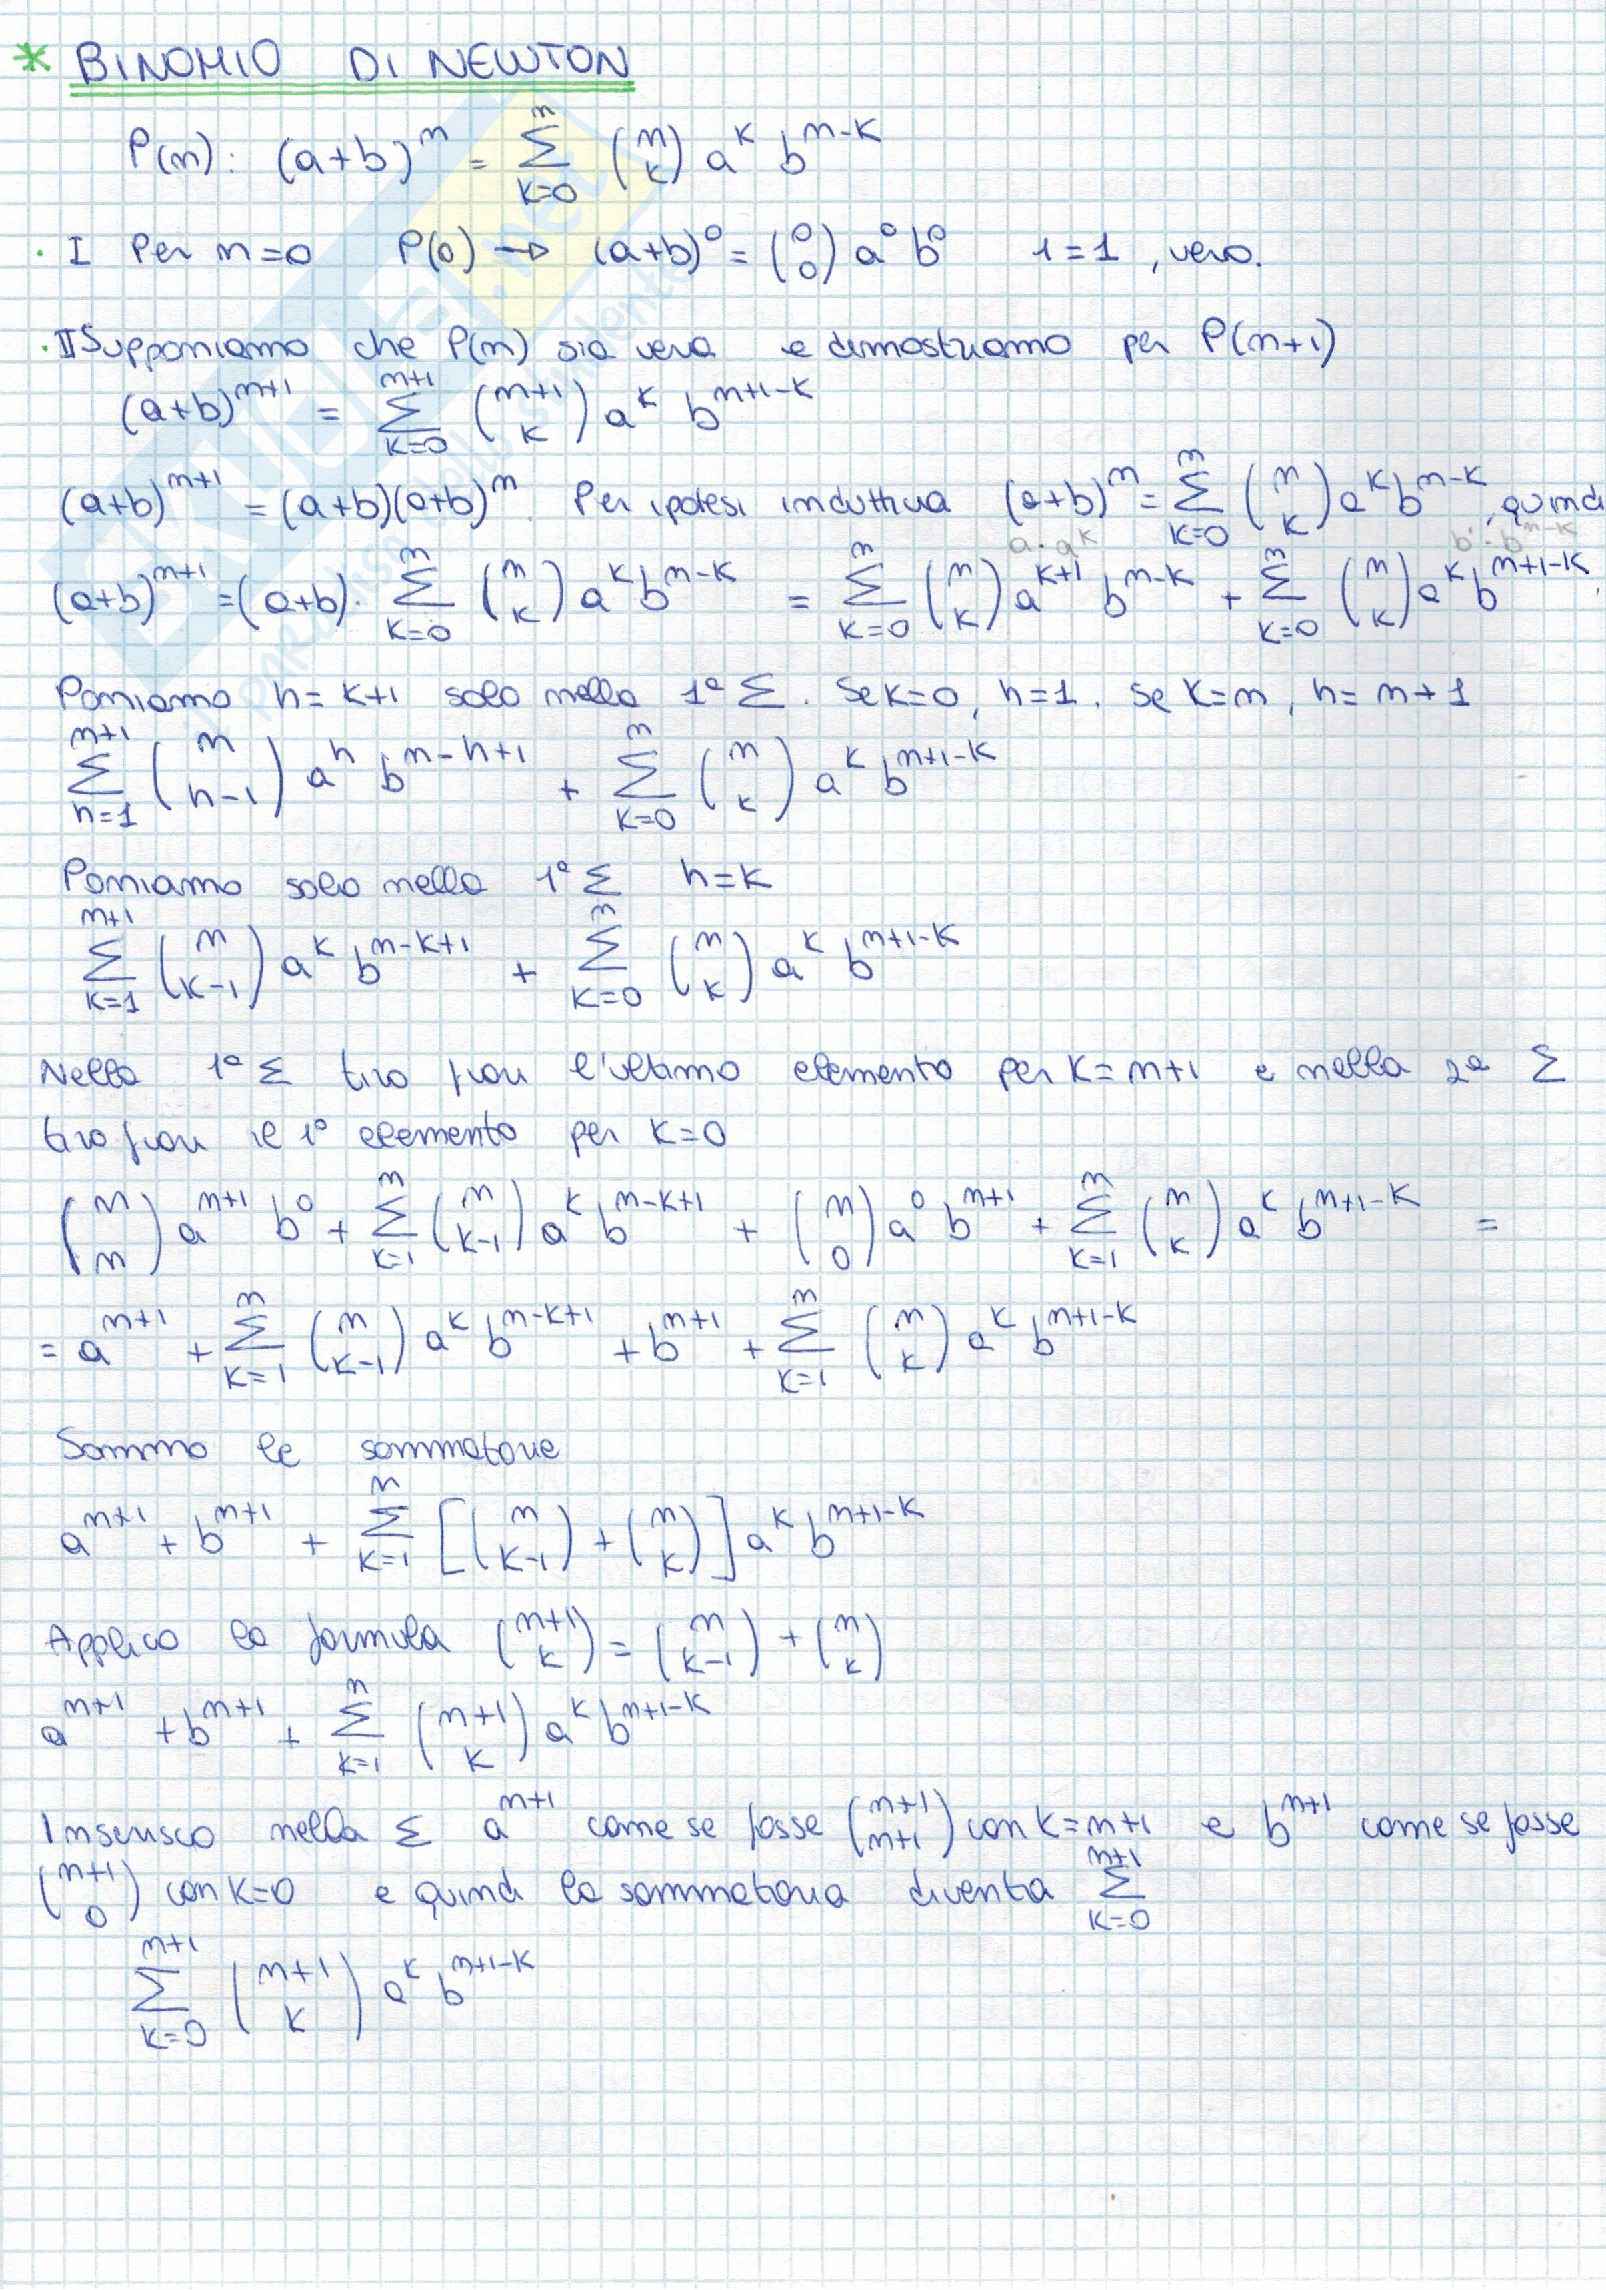 * BINOMIO DI NEWTON
P(n): (a+b)^n = Σ_{k=0}^{n} (n k) a^k b^{n-k}
· I Per n=0 P(0) → (a+b)^0 = (0 0) a^0 b^0 1=1, vero.
· II Supponiamo che P(n) sia vera e dimostriamo per P(n+1)
(a+b)^{n+1} = Σ_{k=0}^{n+1} (n+1 k) a^k b^{n+1-k}
(a+b)^{n+1} = (a+b)(a+b)^n. Per ipotesi induttiva (a+b)^n = Σ_{k=0}^{n} (n k) a^k b^{n-k}, quindi
a·a^k b·b^{n-k}
(a+b)^{n+1} = (a+b)· Σ_{k=0}^{n} (n k) a^k b^{n-k} = Σ_{k=0}^{n} (n k) a^{k+1} b^{n-k} + Σ_{k=0}^{n} (n k) a^k b^{n+1-k}.
Poniamo h=k+1 solo nella 1ª Σ. Se k=0, h=1. Se k=n, h=n+1
Σ_{h=1}^{n+1} (n h-1) a^h b^{n-h+1} + Σ_{k=0}^{n} (n k) a^k b^{n+1-k}
Poniamo solo nella 1ª Σ h=k
Σ_{k=1}^{n+1} (n k-1) a^k b^{n-k+1} + Σ_{k=0}^{n} (n k) a^k b^{n+1-k}
Nella 1ª Σ tiro fuori l'ultimo elemento per k=n+1 e nella 2ª Σ
tiro fuori il 1º elemento per k=0
(n n) a^{n+1} b^0 + Σ_{k=1}^{n} (n k-1) a^k b^{n-k+1} + (n 0) a^0 b^{n+1} + Σ_{k=1}^{n} (n k) a^k b^{n+1-k} =
= a^{n+1} + Σ_{k=1}^{n} (n k-1) a^k b^{n-k+1} + b^{n+1} + Σ_{k=1}^{n} (n k) a^k b^{n+1-k}
Sommo le sommatorie
a^{n+1} + b^{n+1} + Σ_{k=1}^{n} [(n k-1) + (n k)] a^k b^{n+1-k}
Applico la formula (n+1 k) = (n k-1) + (n k)
a^{n+1} + b^{n+1} + Σ_{k=1}^{n} (n+1 k) a^k b^{n+1-k}
Inserisco nella Σ a^{n+1} come se fosse (n+1 n+1) con k=n+1 e b^{n+1} come se fosse
(n+1 0) con k=0 e quindi la sommatoria diventa Σ_{k=0}^{n+1}
Σ_{k=0}^{n+1} (n+1 k) a^k b^{n+1-k}